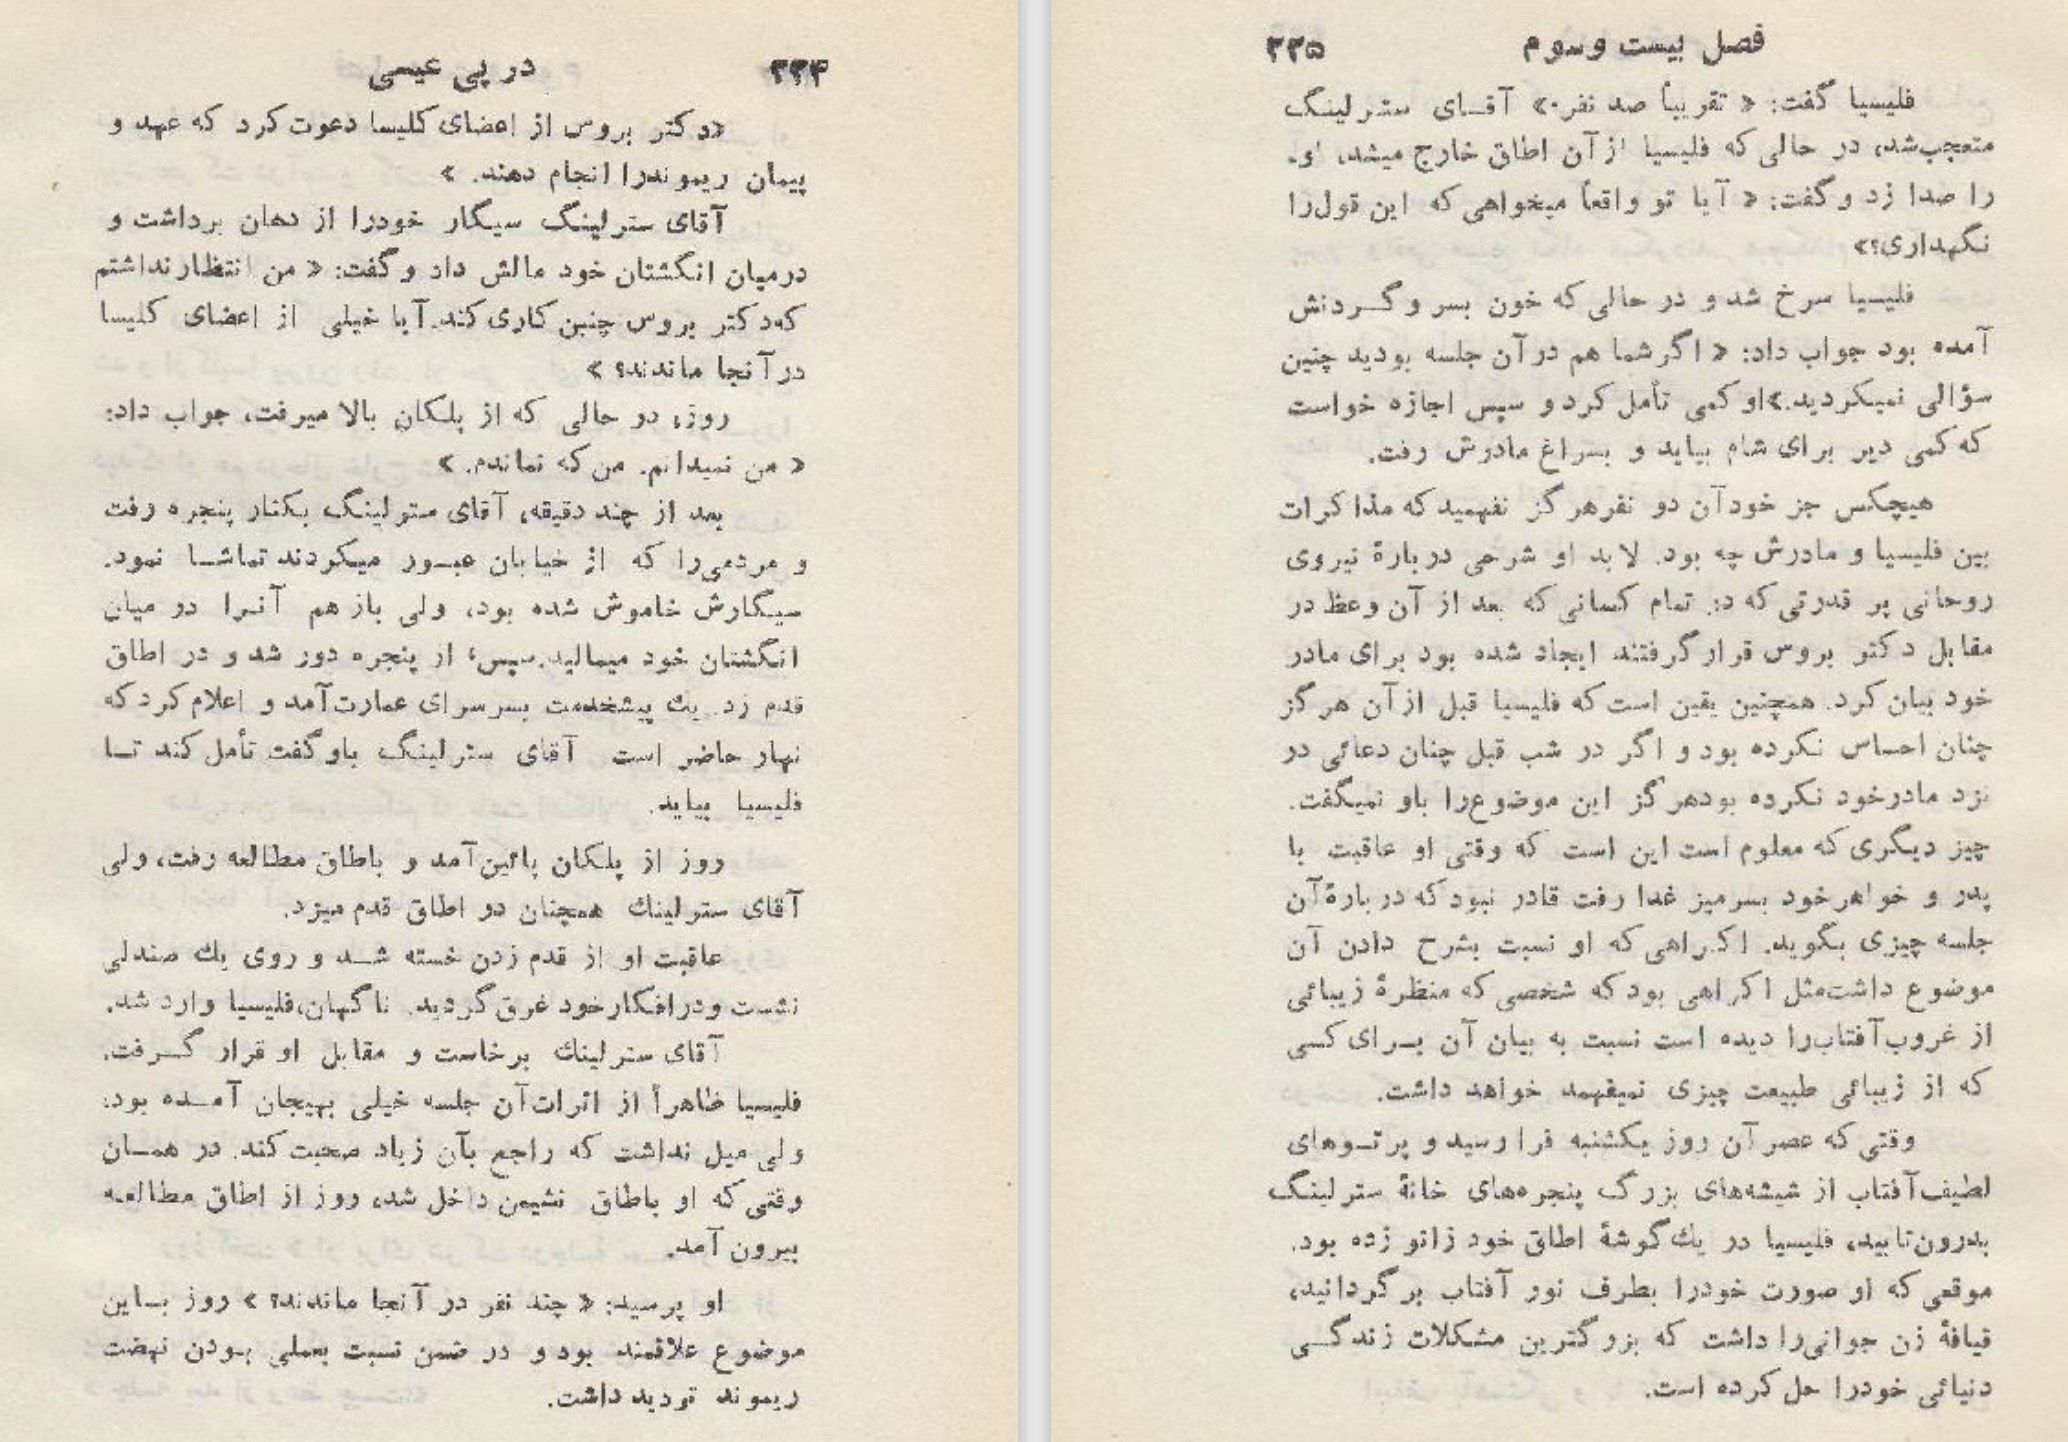 در پی عیسی ۲۲۴
«دکتر بروس از اعضای کلیسا دعوت کرد که عهد و
پیمان ریموندرا انجام دهند. »
آقای سترلینگ سیگار خودرا از دهان برداشت و
درمیان انگشتان خود مالش داد و گفت: « من انتظار نداشتم
که دکتر بروس چنین کاری کند. آیا خیلی از اعضای کلیسا
در آنجا ماندند؟ »
روز، در حالی که از پلکان بالا میرفت، جواب داد:
« من نمیدانم. من که نماندم. »
بعد از چند دقیقه، آقای سترلینگ بکنار پنجره رفت
و مردمی‌را که از خیابان عبور میکردند تماشا نمود.
سیگارش خاموش شده بود، ولی بازهم آنرا در میان
انگشتان خود میمالید. سپس، از پنجره دور شد و در اطاق
قدم زد. یك پیشخدمت بسرسرای عمارت آمد و اعلام کرد که
نهار حاضر است آقای سترلینگ باو گفت تأمل کند تا
فلیسیا بیاید.
روز از پلکان پائین آمد و باطاق مطالعه رفت، ولی
آقای سترلینك همچنان در اطاق قدم میزد.
عاقبت او از قدم زدن خسته شد و روی یك صندلی
نشست و درافکار خود غرق گردید. ناگهان، فلیسیا وارد شد.
آقای سترلینك برخاست و مقابل او قرار گرفت.
فلیسیا ظاهراً از اثرات آن جلسه خیلی بهیجان آمده بود،
ولی میل نداشت که راجع بآن زیاد صحبت کند. در همان
وقتی که او باطاق نشیمن داخل شد، روز از اطاق مطالعه
بیرون آمد.
او پرسید: « چند نفر در آنجا ماندند؟ » روز باین
موضوع علاقمند بود و در ضمن نسبت بعملی بودن نهضت
ریموند تردید داشت.
فصل بیست و سوم ۲۲۵
فلیسیا گفت: « تقریباً صد نفر.» آقای سترلینگ
متعجب شد، در حالی که فلیسیا از آن اطاق خارج میشد، او
را صدا زد و گفت: « آیا تو واقعاً میخواهی که این قول‌را
نگهداری؟»
فلیسیا سرخ شد و در حالی که خون بسر و گردنش
آمده بود جواب داد: « اگر شما هم در آن جلسه بودید چنین
سؤالی نمیکردید.» او کمی تأمل کرد و سپس اجازه خواست
که کمی دیر برای شام بیاید و بسراغ مادرش رفت.
هیچکس جز خود آن دو نفر هرگز نفهمید که مذاکرات
بین فلیسیا و مادرش چه بود. لابد او شرحی دربارهٔ نیروی
روحانی پر قدرتی که در تمام کسانی که بعد از آن وعظ در
مقابل دکتر بروس قرار گرفتند ایجاد شده بود برای مادر
خود بیان کرد. همچنین یقین است که فلیسیا قبل از آن هرگز
چنان احساس نکرده بود و اگر در شب قبل چنان دعائی در
نزد مادر خود نکرده بود هرگز این موضوع‌را باو نمیگفت.
چیز دیگری که معلوم است این است که وقتی او عاقبت با
پدر و خواهر خود بسر میز غذا رفت قادر نبود که دربارهٔ آن
جلسه چیزی بگوید. اکراهی که او نسبت بشرح دادن آن
موضوع داشت مثل اکراهی بود که شخصی که منظرهٔ زیبائی
از غروب آفتاب‌را دیده است نسبت به بیان آن برای کسی
که از زیبائی طبیعت چیزی نمیفهمد خواهد داشت.
وقتی که عصر آن روز یکشنبه فرا رسید و پرتوهای
لطیف آفتاب از شیشه‌های بزرگ پنجره‌های خانهٔ سترلینگ
بدرون تابید، فلیسیا در یك گوشهٔ اطاق خود زانو زده بود.
موقعی که او صورت خودرا بطرف نور آفتاب برگردانید،
قیافهٔ زن جوانی‌را داشت که بزرگترین مشکلات زندگی
دنیائی خودرا حل کرده است.